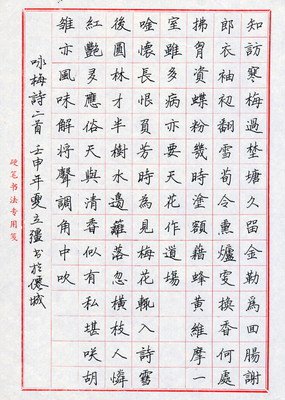 知訪寒梅過埜塘久留金勒為回腸謝
郎衣袖初翻雪荀令熏爐更換香何處
拂胷資蝶粉幾時塗額藉蜂黃維摩一
室雖多病亦要天花作道場
唫懷長恨負芳時為見梅花輒入詩雪
後園林才半樹水邊籬落忽橫枝人憐
紅艷多應俗天與清香似有私堪咲胡
雛亦風味解將聲調角中吹
咏梅詩二首 壬申年 立疆书於 城
硬笔书法专用笺